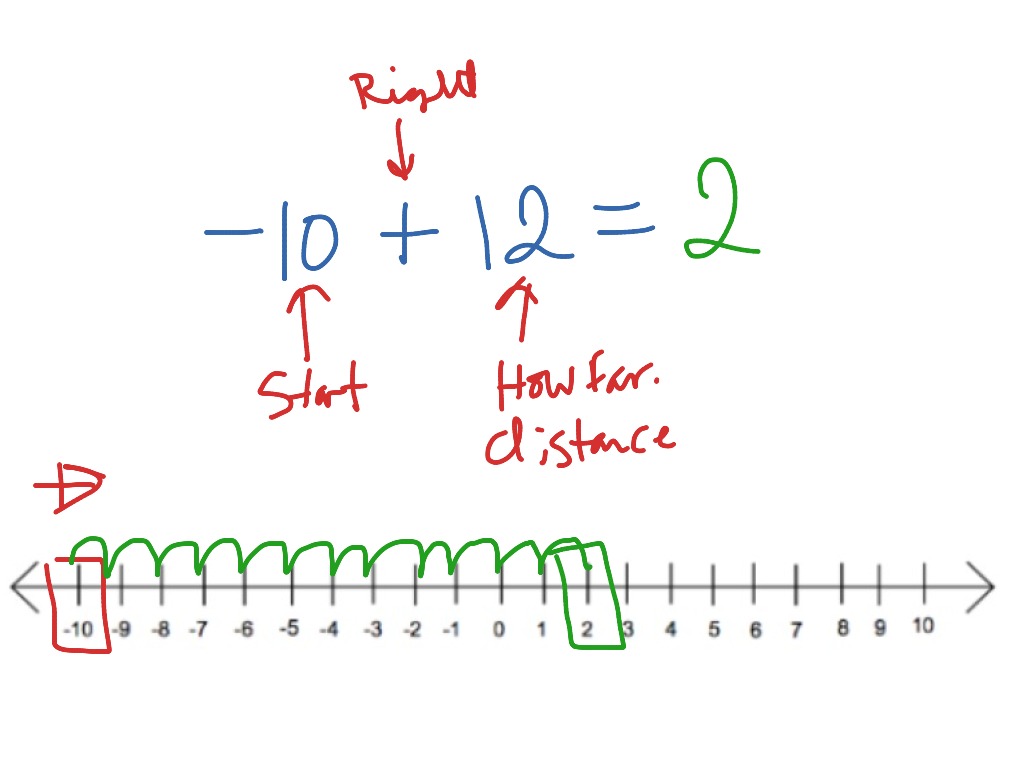 Right
-10 + 12 = 2
Start
How far.
distance
-10 -9 -8 -7 -6 -5 -4 -3 -2 -1 0 1 2 3 4 5 6 7 8 9 10